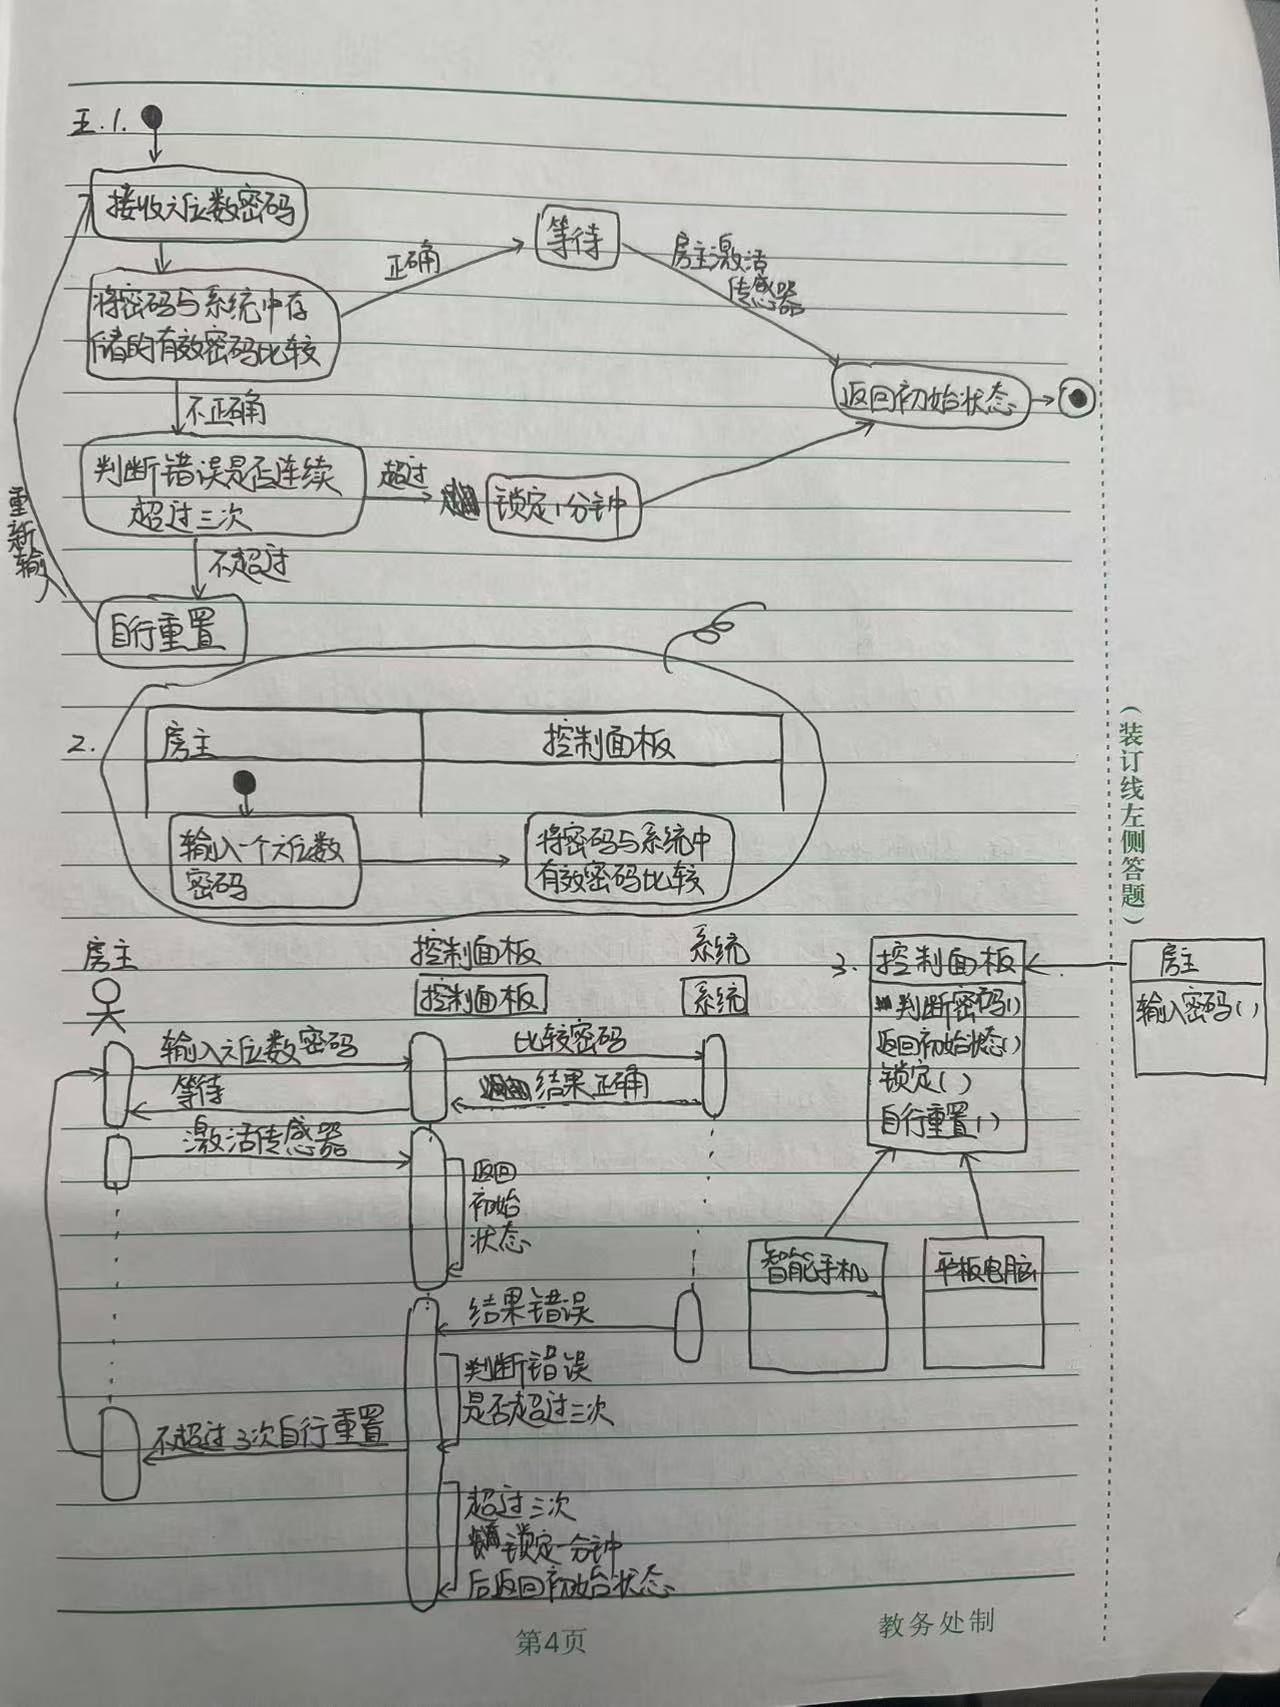 五.1.
接收六位数密码
将密码与系统中存
储的有效密码比较
正确
等待
房主激活
传感器
返回初始状态
不正确
判断错误是否连续
超过三次
超过
锁定1分钟
不超过
自行重置
重新输入
2.
房主
控制面板
输入一个六位数
密码
将密码与系统中
有效密码比较
房主
控制面板
系统
控制面板
系统
输入六位数密码
比较密码
等待
结果正确
激活传感器
返回
初始
状态
结果错误
判断错误
是否超过三次
不超过3次自行重置
超过三次
锁定一分钟
后返回初始状态
3.
控制面板
判断密码()
返回初始状态()
锁定()
自行重置()
房主
输入密码()
智能手机
平板电脑
(装订线左侧答题)
第4页
教务处制